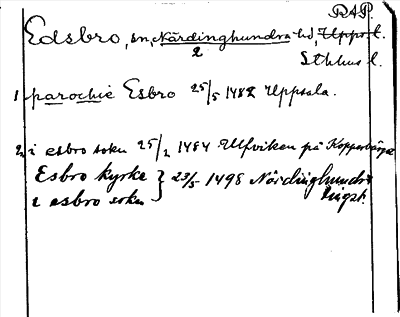 RAP.
Edsbro, sn, Närdinghundra hd, Upps. l.
2
Sthlms l.
1 parochie Esbro 25/5 1482 Uppsala.
2, i esbro sokn 25/2 1484 Ulfviken på Kopparbärge
Esbro kyrke } 23/5 1498 Nördinghundra
i esbro sokn tingst.